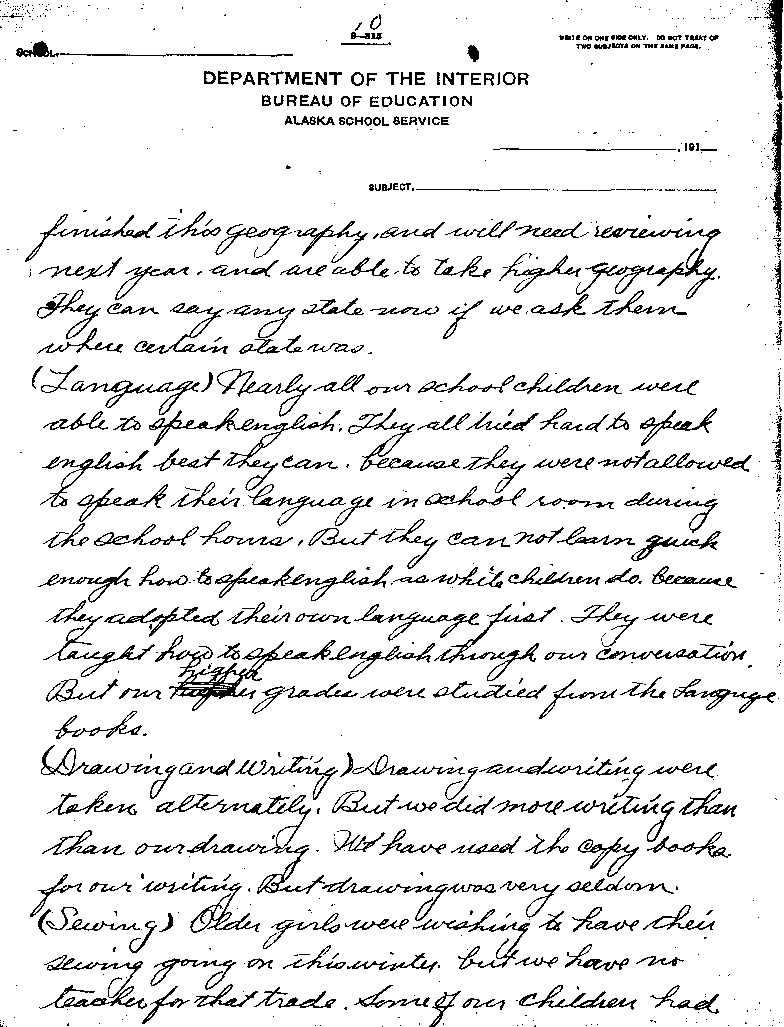 10
9—315
WRITE ON ONE SIDE ONLY. DO NOT TREAT OF
TWO SUBJECTS ON THE SAME PAGE.
SCHOOL
DEPARTMENT OF THE INTERIOR
BUREAU OF EDUCATION
ALASKA SCHOOL SERVICE
, 191
SUBJECT
finished this geography, and will need reviewing
next year. and are able to take higher geography.
They can say any state now if we ask them
where certain state was.
(Language) Nearly all our school children were
able to speak english. They all tried hard to speak
english best they can. because they were not allowed
to speak their language in school room during
the school hours. But they can not learn quick
enough how to speak english as white children do. because
they adopted their own language first. They were
taught how to speak english through our conversation.
higher
But our grades were studied from the Languge
books.
(Drawing and Writing) Drawing and writing were
taken alternately. But we did more writing than
than our drawing. We have used the copy books
for our writing. But drawing was very seldom.
(Sewing) Older girls were wishing to have their
sewing going on this winter. but we have no
teacher for that trade. Some of our children had